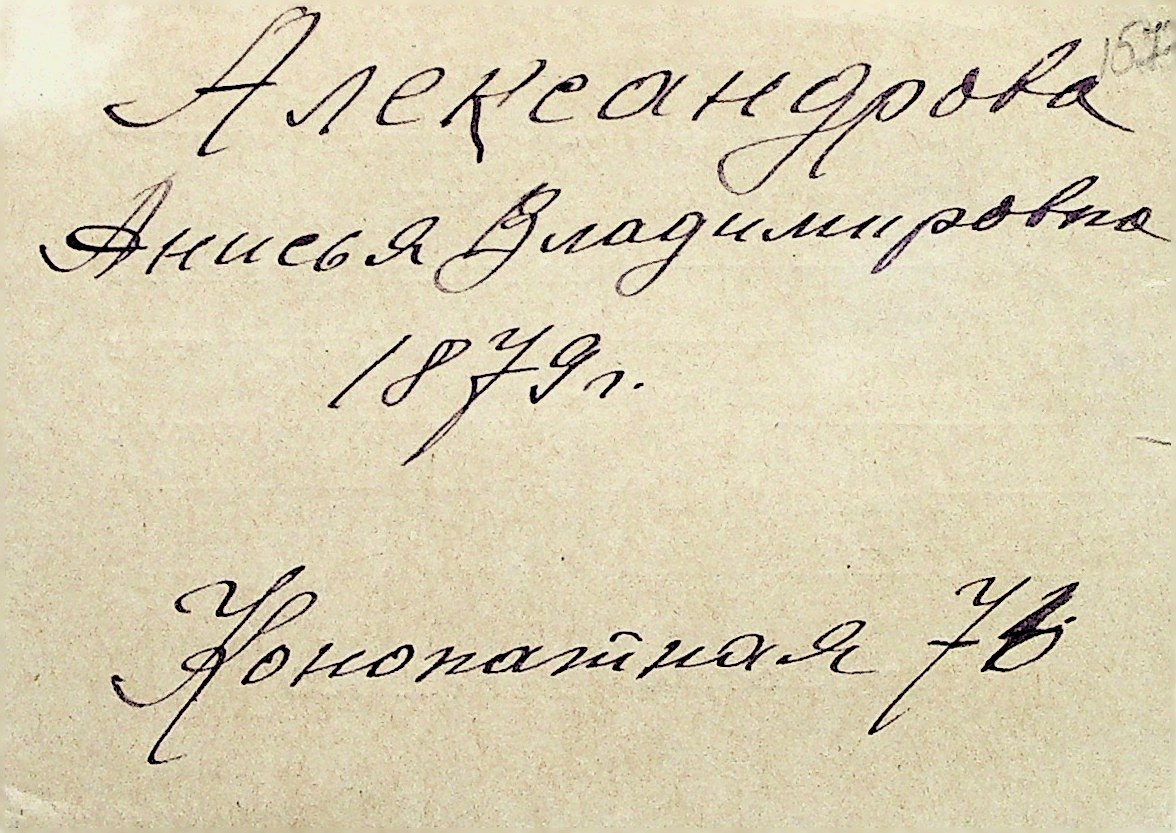 Александрова
Анисья Владимировна
1879 г.
Конопатная